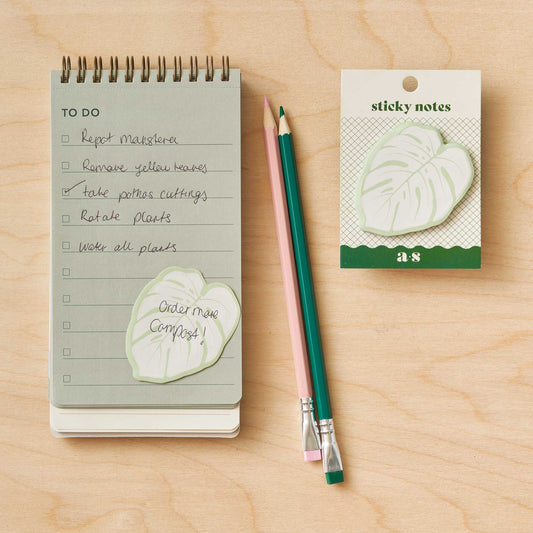 TO DO
Repot monsterea
Remove yellow leaves
take pothos cuttings
Rotate plants
water all plants
Order more
Compost!
sticky notes
a·s